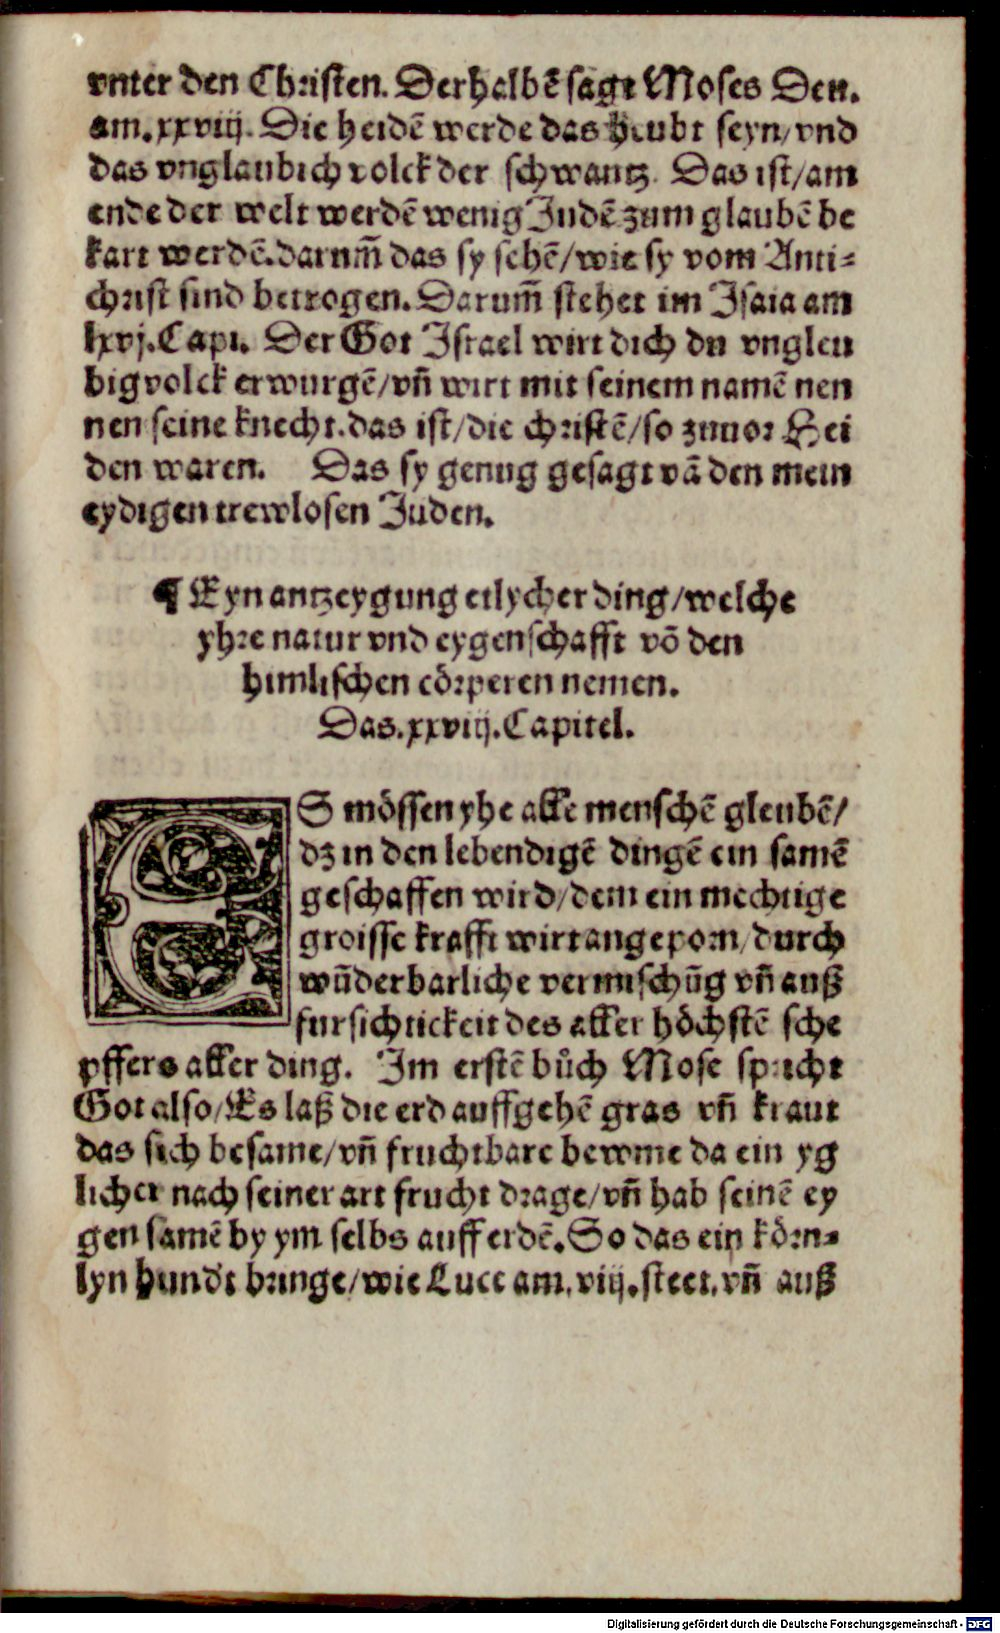 vnter den Christen. Derhalbē sagt Moses Deu.
am. xxviij. Die heidē werde das heubt seyn/vnd
das vnglaubich volck der schwantz. Das ist/am
ende der welt werdē wenig Judē zum glaubē be
kart werdē. darum̄ das sy sehē/wie sy vom Anti-
christ sind betrogen. Darum̄ stehet im Jsaia am
lxvj. Capi. Der Got Jsrael wirt dich du vngleu
big volck erwurgē/vn̄ wirt mit seinem namē nen
nen seine knecht. das ist/die christē/so zuuor Hei
den waren. Das sy genug gesagt vā den mein
eydigen trewlosen Juden.
¶ Eyn antzeygung etlycher ding/welche
yhre natur vnd eygenschafft vō den
himlischen cörperen nemen.
Das. xxviij. Capitel.
ES mössen yhe alle menschē gleubē/
dz in den lebendigē dingē ein samē
geschaffen wird/dem ein mechtige
groisse krafft wirt angeporn/durch
wūderbarliche vermischūg vn̄ auß
fursichtickeit des aller höchstē sche
pffers aller ding. Im erstē bůch Mose spricht
Got also/Es laß die erd auffgehē gras vn̄ kraut
das sich besame/vn̄ fruchtbare bewme da ein yg
licher nach seiner art frucht drage/vn̄ hab seinē ey
gen samē by ym selbs auff erdē. So das ein körn-
lyn hundt bringe/wie Luce am. viij. steet. vn̄ auß
Digitalisierung gefördert durch die Deutsche Forschungsgemeinschaft - DFG